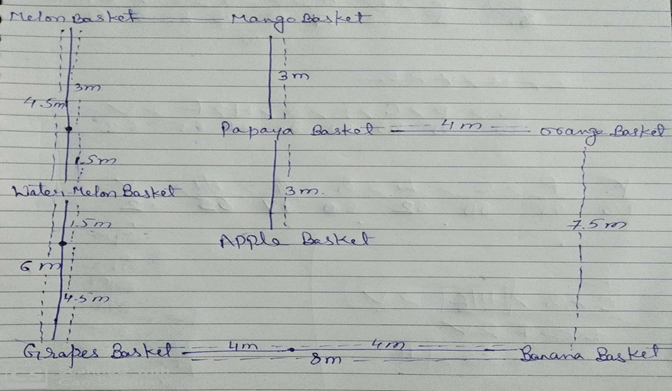 Melon Basket Mango Basket
3m 3m
4.5m
Papaya Basket 4m Orange Basket
1.5m
Water Melon Basket 3m
1.5m 7.5m
Apple Basket
6m
4.5m
Grapes Basket 4m 4m Banana Basket
8m